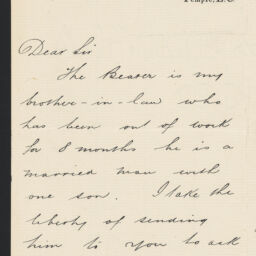 Temple, E.C.
Dear Sir
The Bearer is my
brother-in-law who
has been out of work
for 8 months he is a
married man with
one son. I take the
liberty of sending
him to you to ask